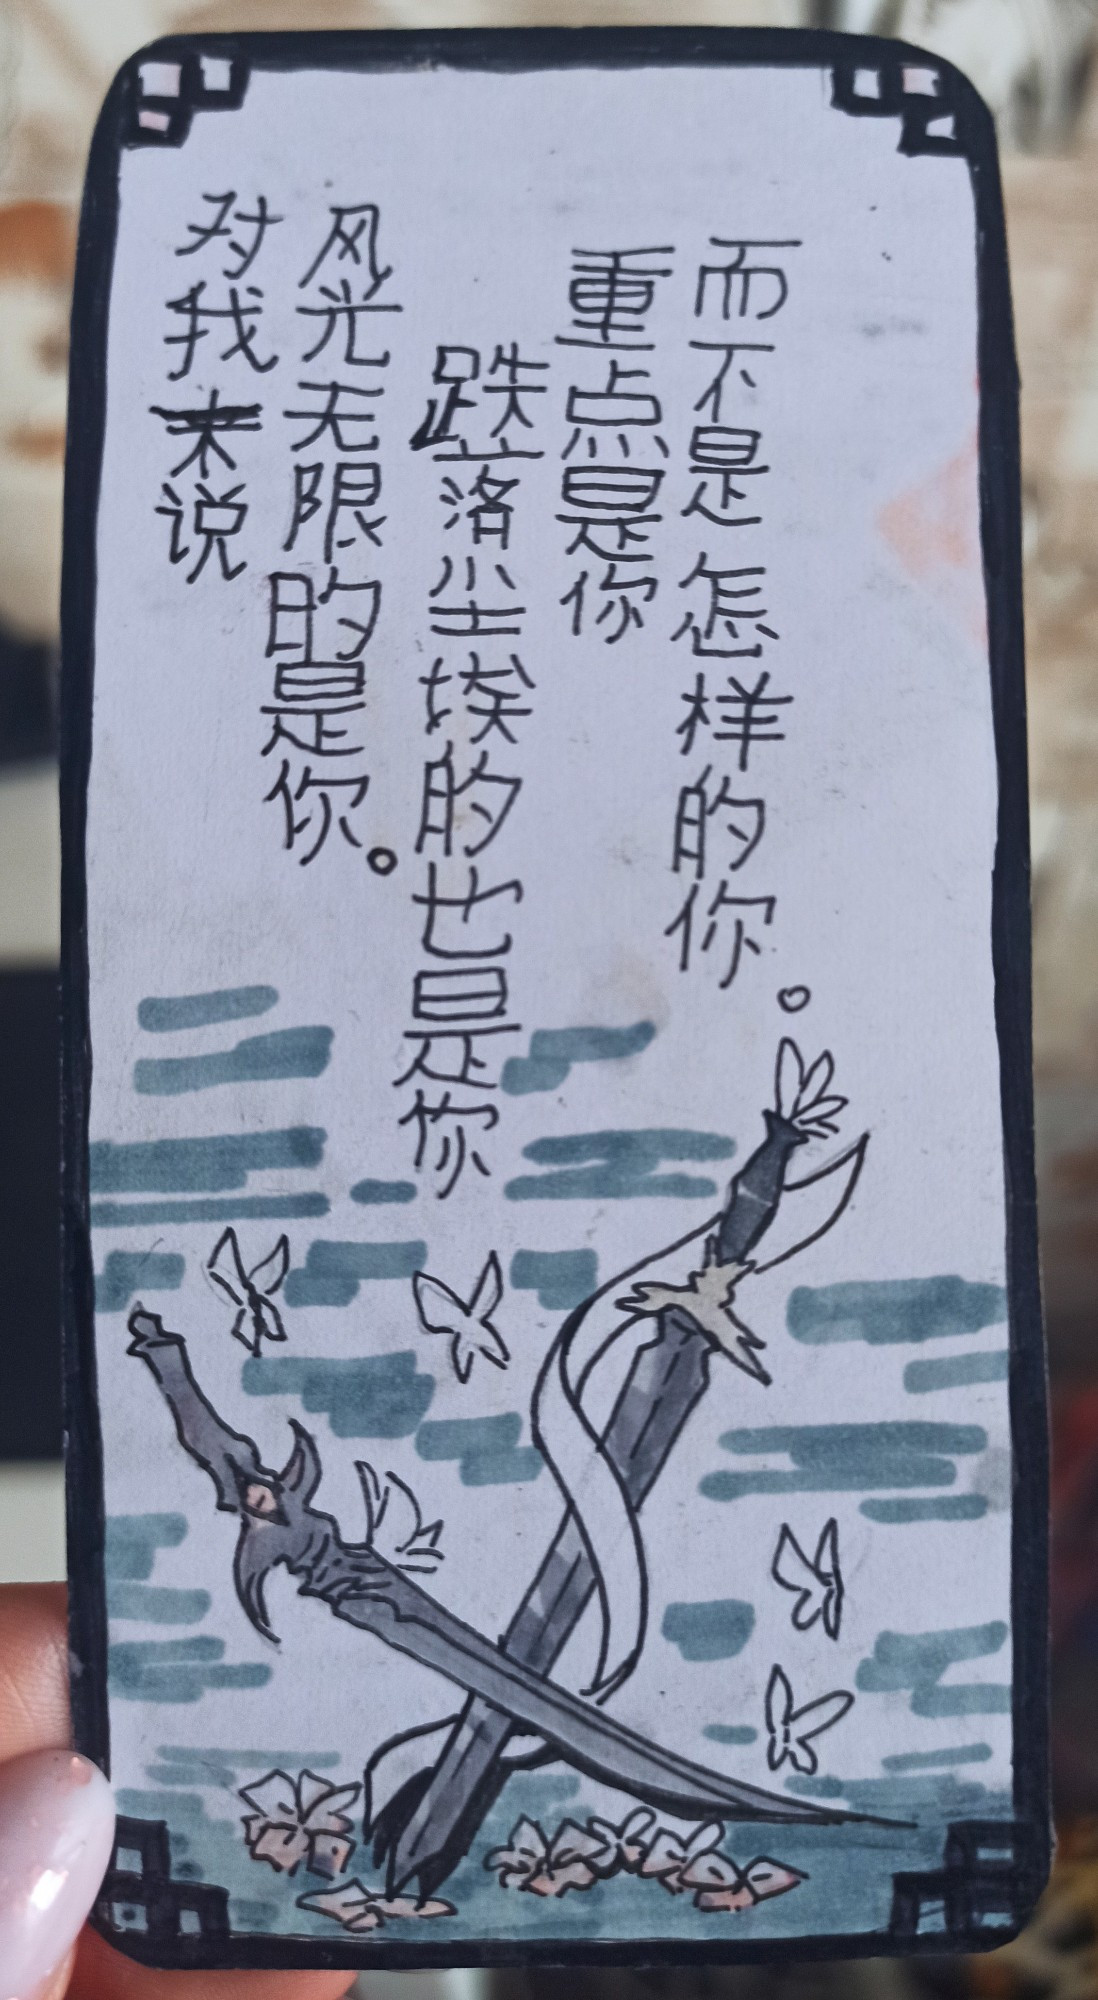 对我来说
风光无限的是你。
跌落尘埃的也是你
重点是你
而不是怎样的你。